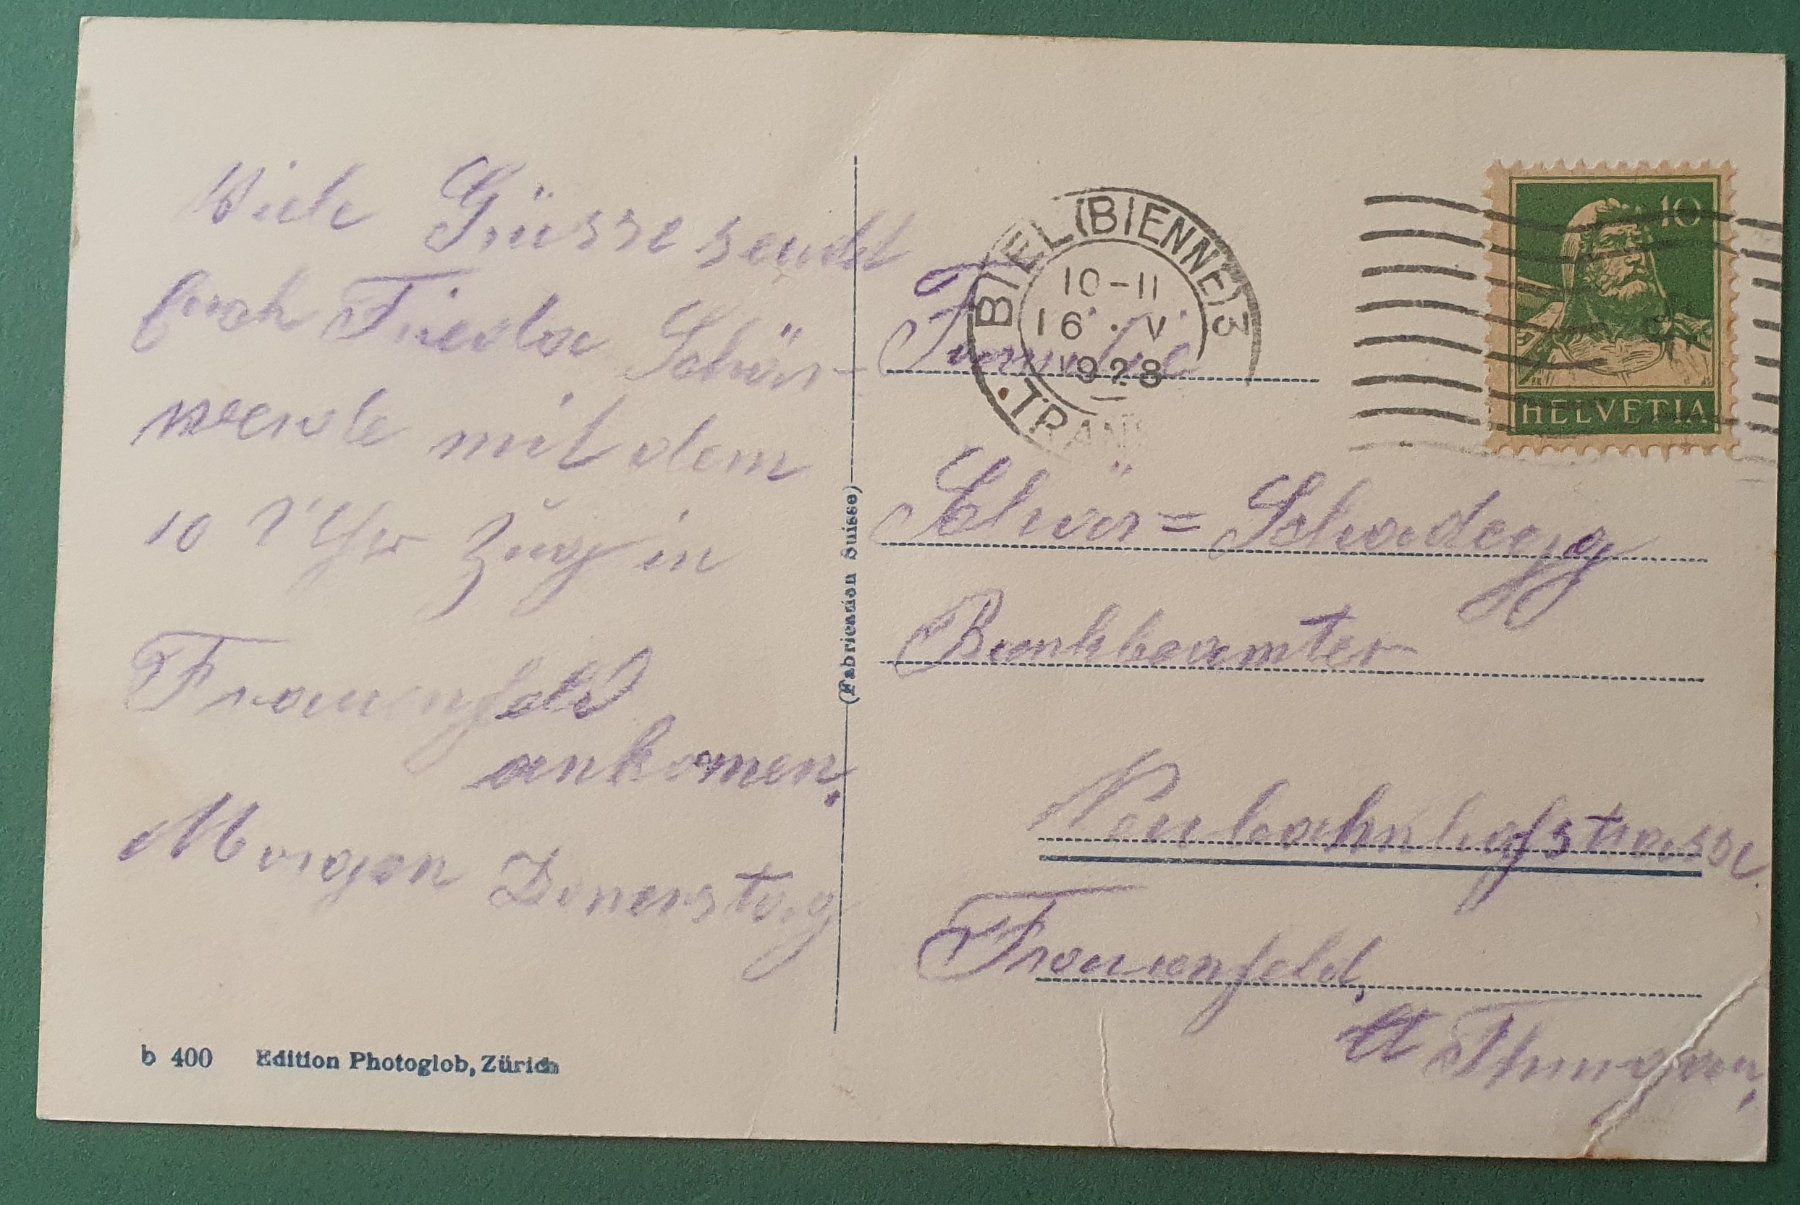 Viele Grüsse sendet
Euch Frieda Schär-
werde mit dem
10 Uhr Zug in
Frauenfeld
ankomen.
Morgen Donerstag
b 400 Edition Photoglob, Zürich
(Fabrication Suisse)
BIEL (BIENNE) 3
10-11
16. V.
1928
TRAN
10
HELVETIA
Familie
Schär = Schadegg
Bankbeamter
Neubahnhofstrasse.
Frauenfeld,
Ct Thurgau,